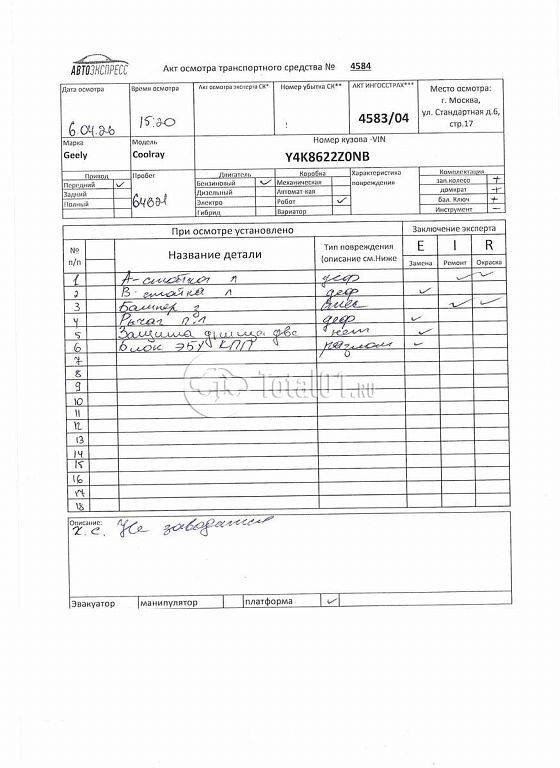 АВТОЭКСПРЕСС
Акт осмотра транспортного средства № 4584
Дата осмотра
6.04.26
Время осмотра
15:20
Акт осмотра эксперта СК*
Номер убытка СК**
АКТ ИНГОССТРАХ***
4583/04
Место осмотра:
г. Москва,
ул. Стандартная д.6,
стр.17
Марка
Geely
Модель
Coolray
Номер кузова -VIN
Y4K8622Z0NB
Привод
Передний ✓
Задний
Полный
Пробег
64821
Двигатель
Бензиновый ✓
Дизельный
Электро
Гибрид
Коробка
Механическая
Автомат-кая
Робот ✓
Вариатор
Характеристика
повреждения
Комплектация
зап.колесо +
домкрат +
бал. Ключ +
Инструмент –
При осмотре установлено
Заключение эксперта
№
п/п
Название детали
Тип повреждения
(описание см.Ниже
E I R
Замена Ремонт Окраска
1 А-стойка л деф ✓ ✓
2 В-стойка л деф ✓
3 Бампер з ✓ ✓
4 Рычаг п.л деф ✓
5 Защита днища две нет ✓
6 Блок ЭБУ КПП разлом ✓
7
8
9
10
11
12
13
14
15
16
17
18
Total01.RU
Описание:
х.с. Не заводится
Эвакуатор манипулятор платформа ✓